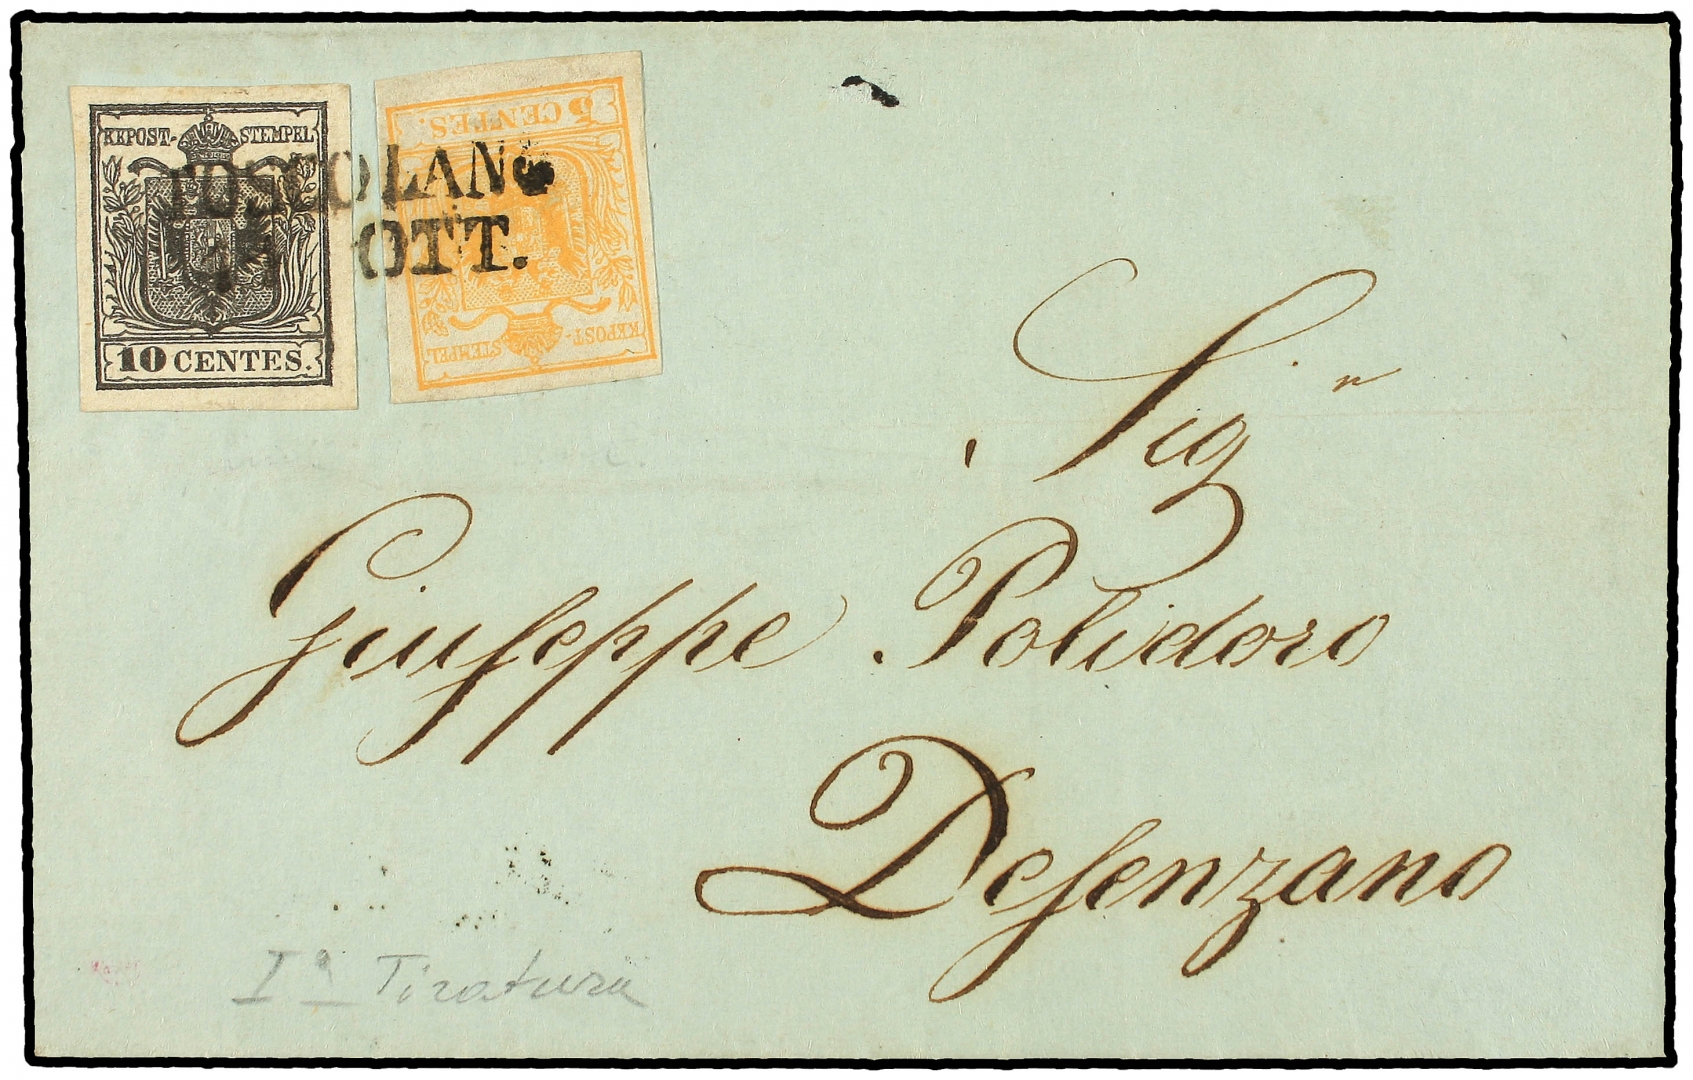 KKPOST-STEMPEL
10 CENTES.
5 CENTES.
KKPOST-STEMPEL
TOSCOLANO
OTT.
Sig.r
Giuseppe Polidoro
Desenzano
Iª Tiratura